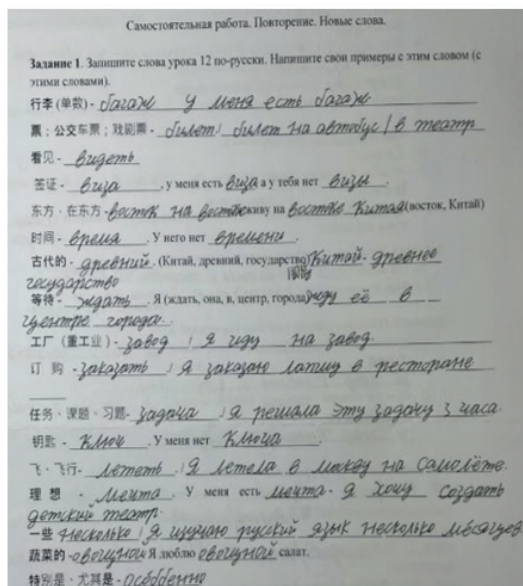 Самостоятельная работа. Повторение. Новые слова.
Задание 1. Запишите слова урока 12 по-русски. Напишите свои примеры с этим словом (с
этими словами).
行李 (单数) - багаж у меня есть багаж
票；公交车票；戏剧票 - билет/ билет на автобус / в театр
看见 - видеть
签证 - виза , у меня есть виза а у тебя нет визы .
东方 · 在东方 - восток на востоке живу на востоке Китая (восток, Китай)
时间 - время . У него нет времени .
古代的 - древний . (Китай, древний, государство) Китай - древнее
国家
государство
等待 - ждать . Я (ждать, она, в, центр, города) жду её в
центре города .
工厂 (重工业) - завод / Я иду на завод.
订 购 - заказать / Я заказаю лапшу в ресторане
任务 · 课题 · 习题 - задача / я решала эту задачу 3 часа.
钥匙 - ключ . У меня нет ключа .
飞 · 飞行 - лететь . / Я летела в москву на самолёте.
理 想 - мечта . У меня есть мечта - я хочу создать
детский театр.
一些 несколько / Я изучаю русский язык несколько месяцев
蔬菜的 - овощной Я люблю овощной салат.
特别是 · 尤其是 - особбенно